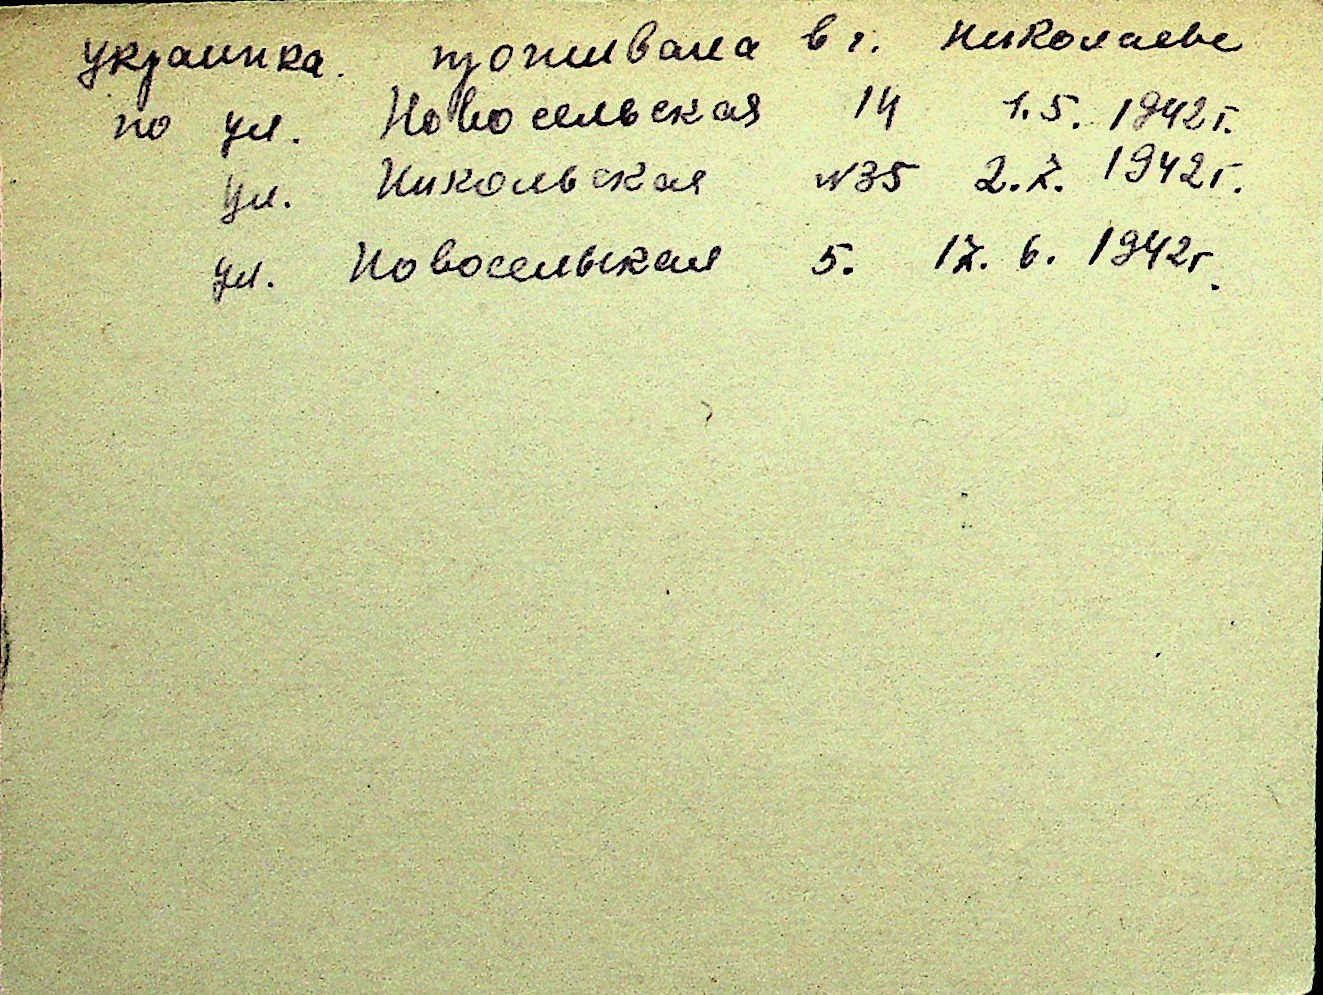 украинка. проживала в г. Николаеве
по ул. Новосельская 14 1.5. 1942г.
ул. Никольская №35 2.7. 1942г.
ул. Новоселькая 5. 17. 6. 1942г.